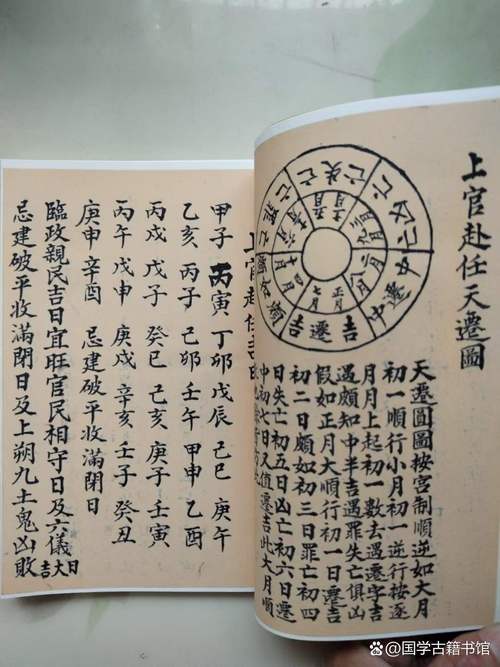 上官赴任天遷圖
吉遷吉
中遷
凶亡
失亡
罪亡
正月
七月
天遷圓圖按宮制順逆如大月
初一順行小月初一逆行按逐
月月上起初一數去遇遷字吉
遇頗知中半吉遇罪失亡俱凶
假如正月大順行初一日遷吉
初二日頗如初三日罪亡初四
日失亡初五日凶亡初六日遷
中初七日又值遷吉此大月順
上官赴任
甲子 丙寅 丁卯 戊辰 己巳 庚午
乙亥 丙子 己卯 壬午 甲申 乙酉
丙戌 戊子 癸巳 己亥 庚子 壬寅
丙午 戊申 庚戌 辛亥 壬子 癸丑
庚申 辛酉 忌建破平收滿閉日
臨政親民吉日宜旺官民相守日及六儀大吉日
忌建破平收滿閉日及上朔九土鬼凶敗
@国学古籍书馆